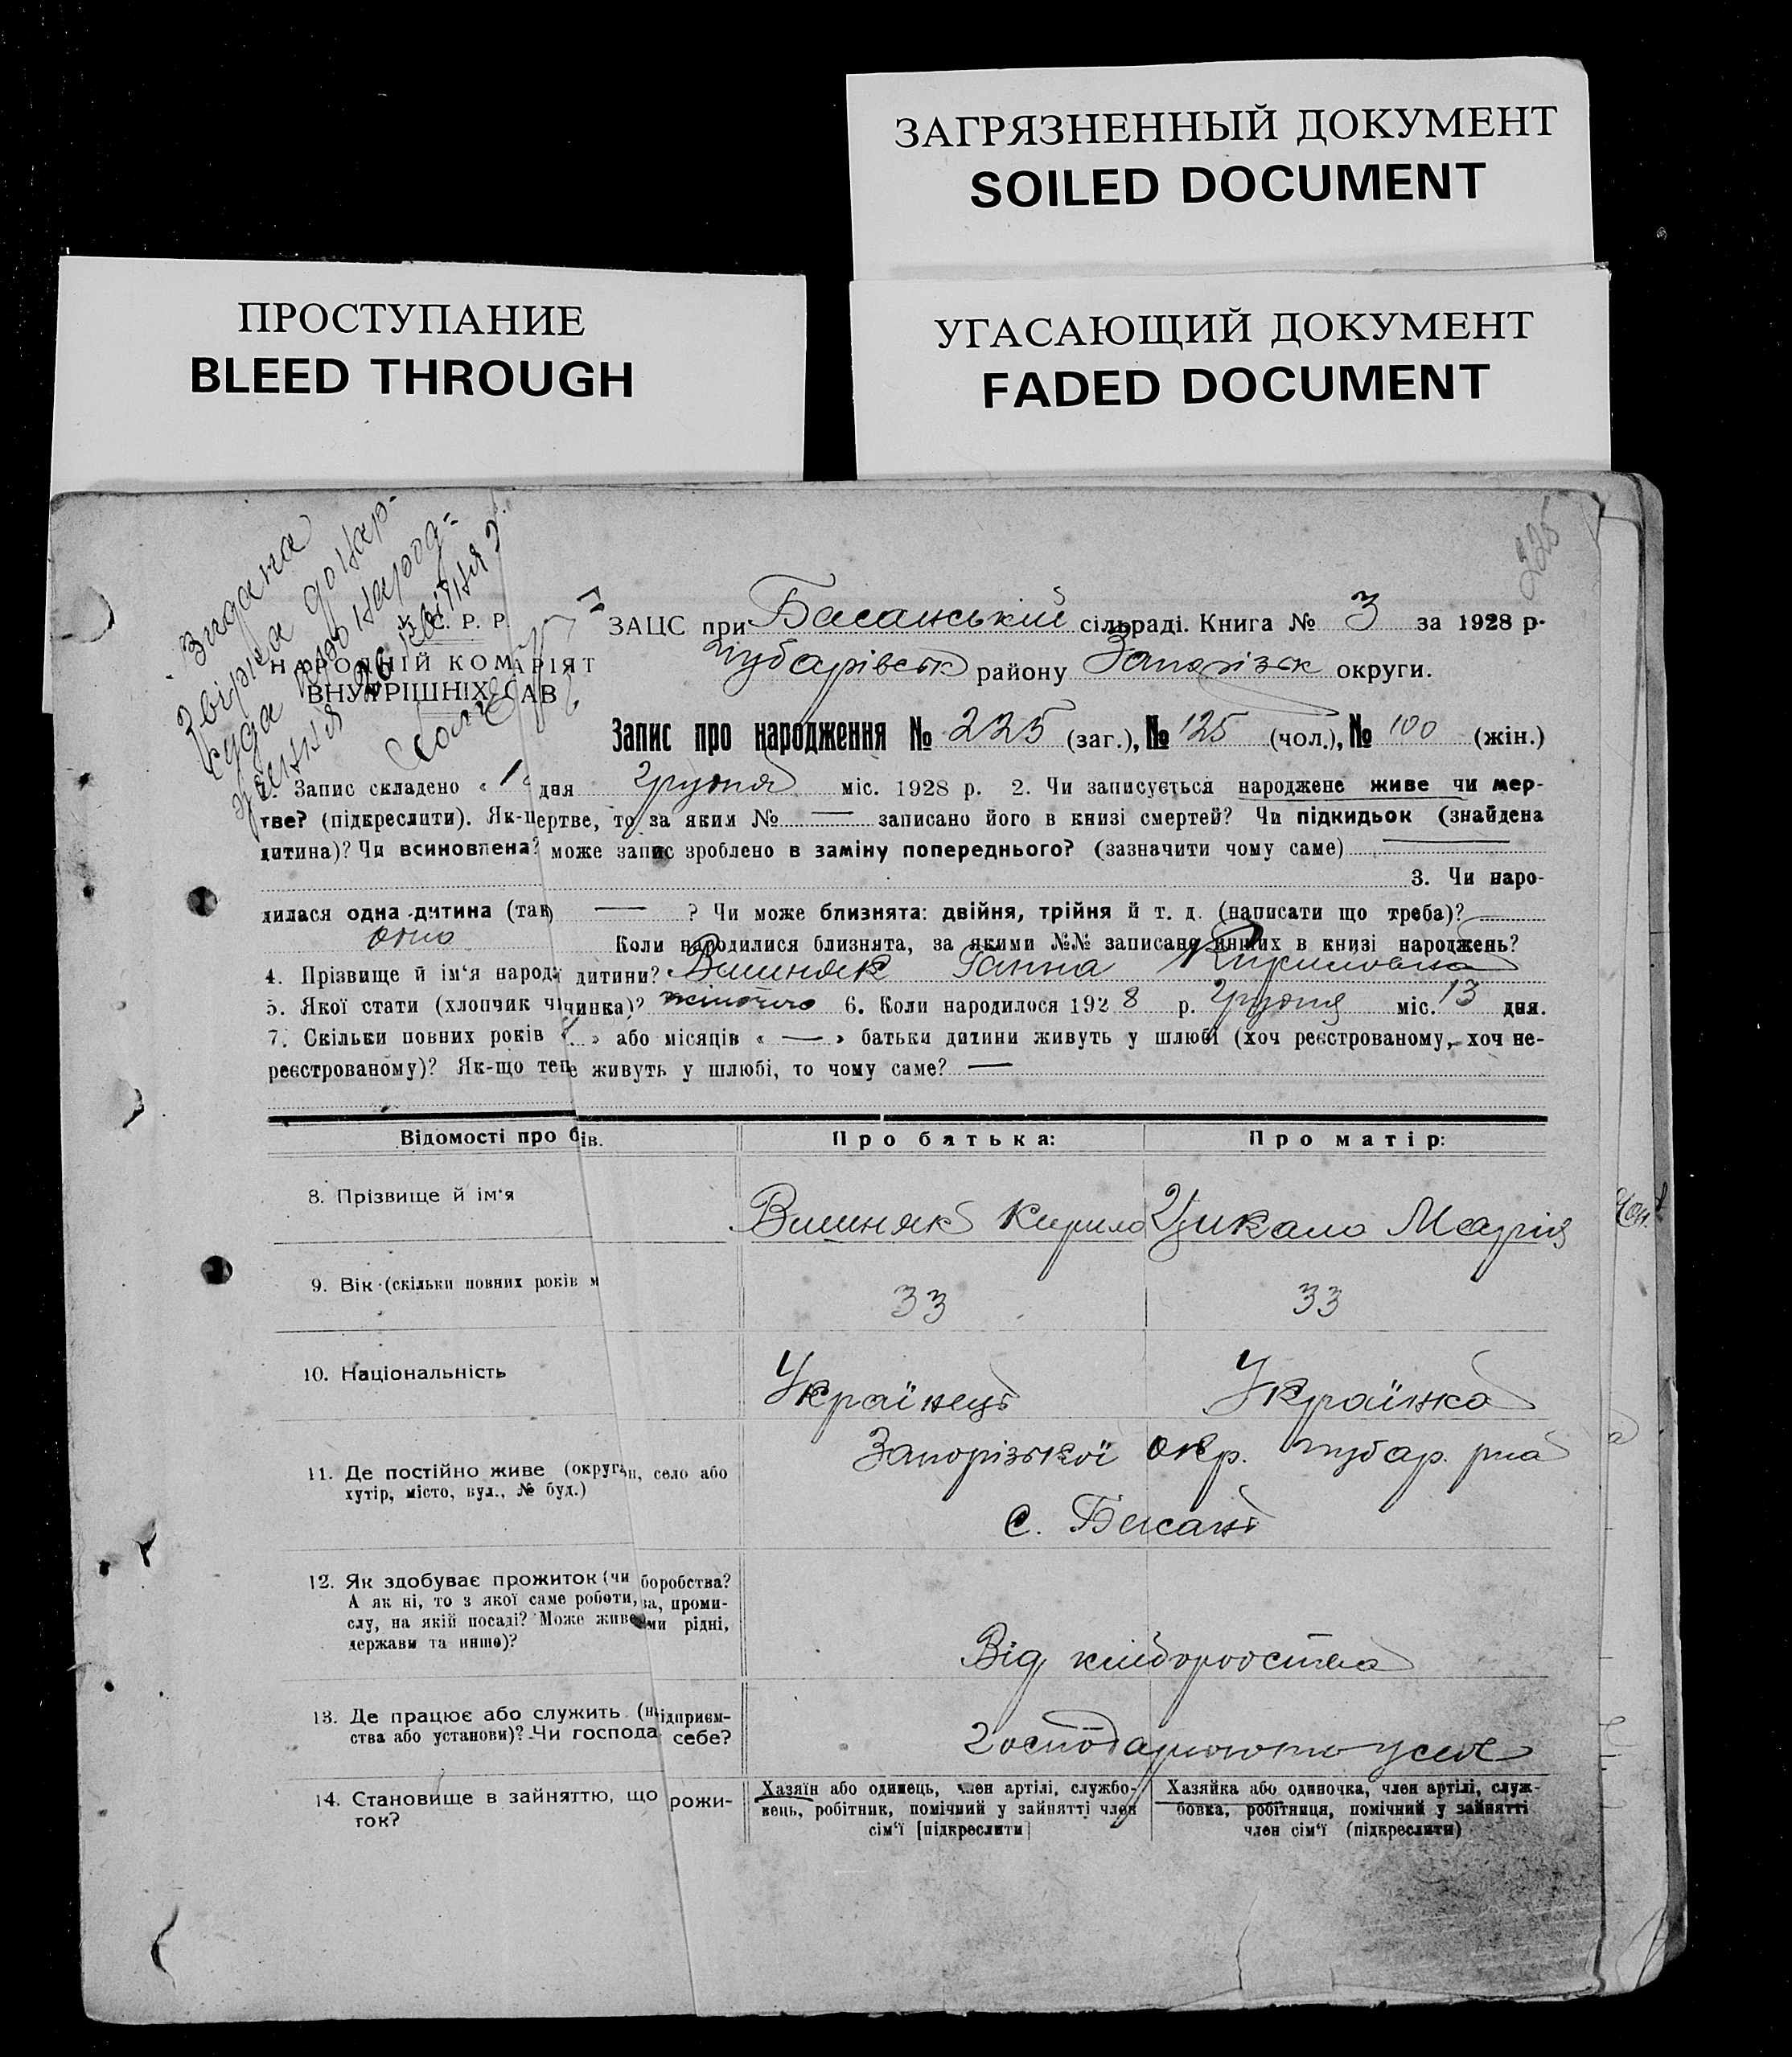 ЗАГРЯЗНЕННЫЙ ДОКУМЕНТ
SOILED DOCUMENT
ПРОСТУПАНИЕ
BLEED THROUGH
УГАСАЮЩИЙ ДОКУМЕНТ
FADED DOCUMENT
225
Видана
С. Р. Р.
НАРОДНІЙ КОМАРІЯТ
ВНУТРІШНІХ САВ
ЗАЦС при Басанській сільраді. Книга № 3 за 1928 р.
Чубарівськ району Запорізьк округи.
Запис про народження № 225 (заг.), № 125 (чол.), № 100 (жін.)
1. Запис складено « дня Грудня міс. 1928 р. 2. Чи записується народжене живе чи мер-
тве? (підкреслити). Як-цертве, то за яким № — записано його в книзі смертей? Чи підкидьок (знайдена
дитина)? Чи всиновлена? може запис зроблено в заміну попереднього? (зазначити чому саме) —
3. Чи наро-
дилася одна дитина (так) — ? Чи може близнята: двійня, трійня й т. д. (написати що треба)?
одно Коли народилися близнята, за якими №№ записано инших в книзі народжень?
4. Прізвище й ім'я народ дитини? Вишняк Ганна Кириловна
5. Якої статі (хлопчик чі чинка)? жіночого 6. Коли народилося 1928 р. Грудня міс. 13 дня.
7. Скільки повних років « » або місяців « — » батьки дитини живуть у шлюбі (хоч реєстрованому, хоч не-
реєстрованому)? Як-що тепе живуть у шлюбі, то чому саме? —
Відомості про бів. Про батька: Про матір:
8. Прізвище й ім'я Вишняк Кирило Цикало Марія
9. Вік (скільки повних років м 33 33
10. Національність Українець Українка
11. Де постійно живе (округ н, село або Запорізької окр. Чубар. рна
хутір, місто, вул., № буд.) с. Басань
12. Як здобуває прожиток (чи боробства?
А як ні, то з якої саме роботи, ва, проми-
слу, на якій посаді? Може живе ми рідні,
держави та инше)? Від хліборобства
13. Де працює або служить (н ідприєм-
ства або установи)? Чи господа себе? Господарюють у себе
14. Становище в зайняттю, що рожи-
ток?
Хазяїн або одинець, член артілі, службо-
вець, робітник, помічний у зайнятті член
сім'ї [підкреслити]
Хазяйка або одиночка, член артілі, служ-
бовка, робітниця, помічний у зайнятті
член сім'ї (підкреслити)